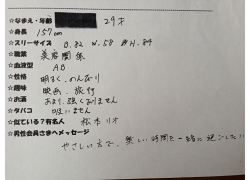 ☆なまえ・年齢 29才
☆身長 157cm
☆スリーサイズ B.82 W.58 H.84
☆職業 美容関係
☆血液型 AB
☆性格 明るく、のんびり
☆趣味 映画、旅行
☆お酒 あまり強くありません
☆タバコ 吸いません
☆似ている?有名人 松本リオ
☆男性会員さまへメッセージ
やさしい方で、楽しい時間を一緒に過ごしたい